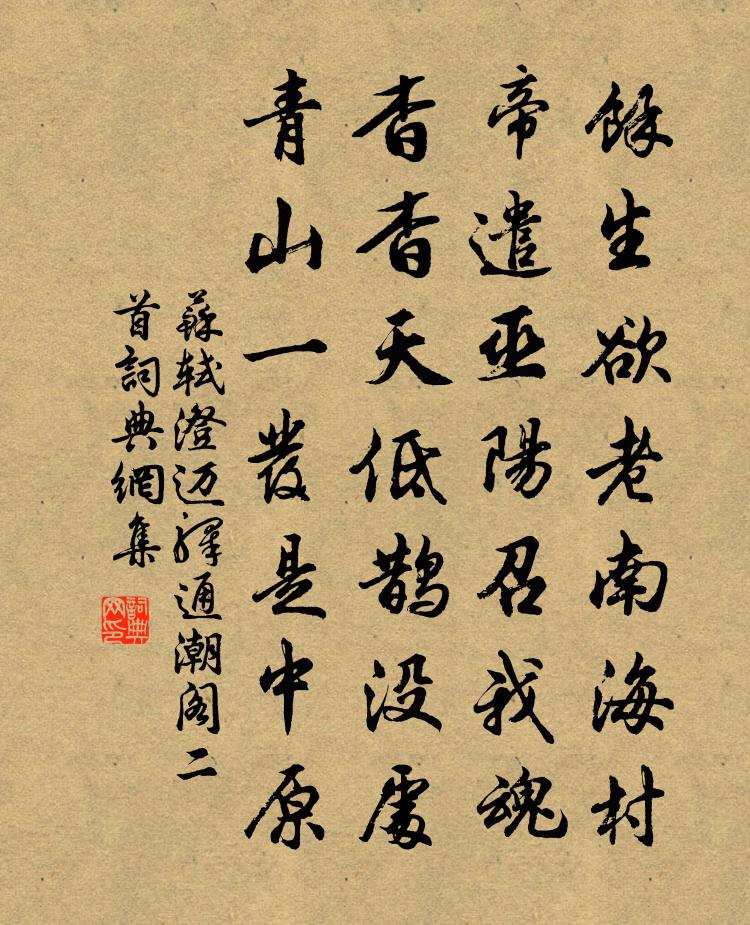 餘生欲老南海村
帝遣巫陽召我魂
杳杳天低鵲没處
青山一發是中原
蘇軾澄迈驛通潮阁二
首詞典網集
詞典网印